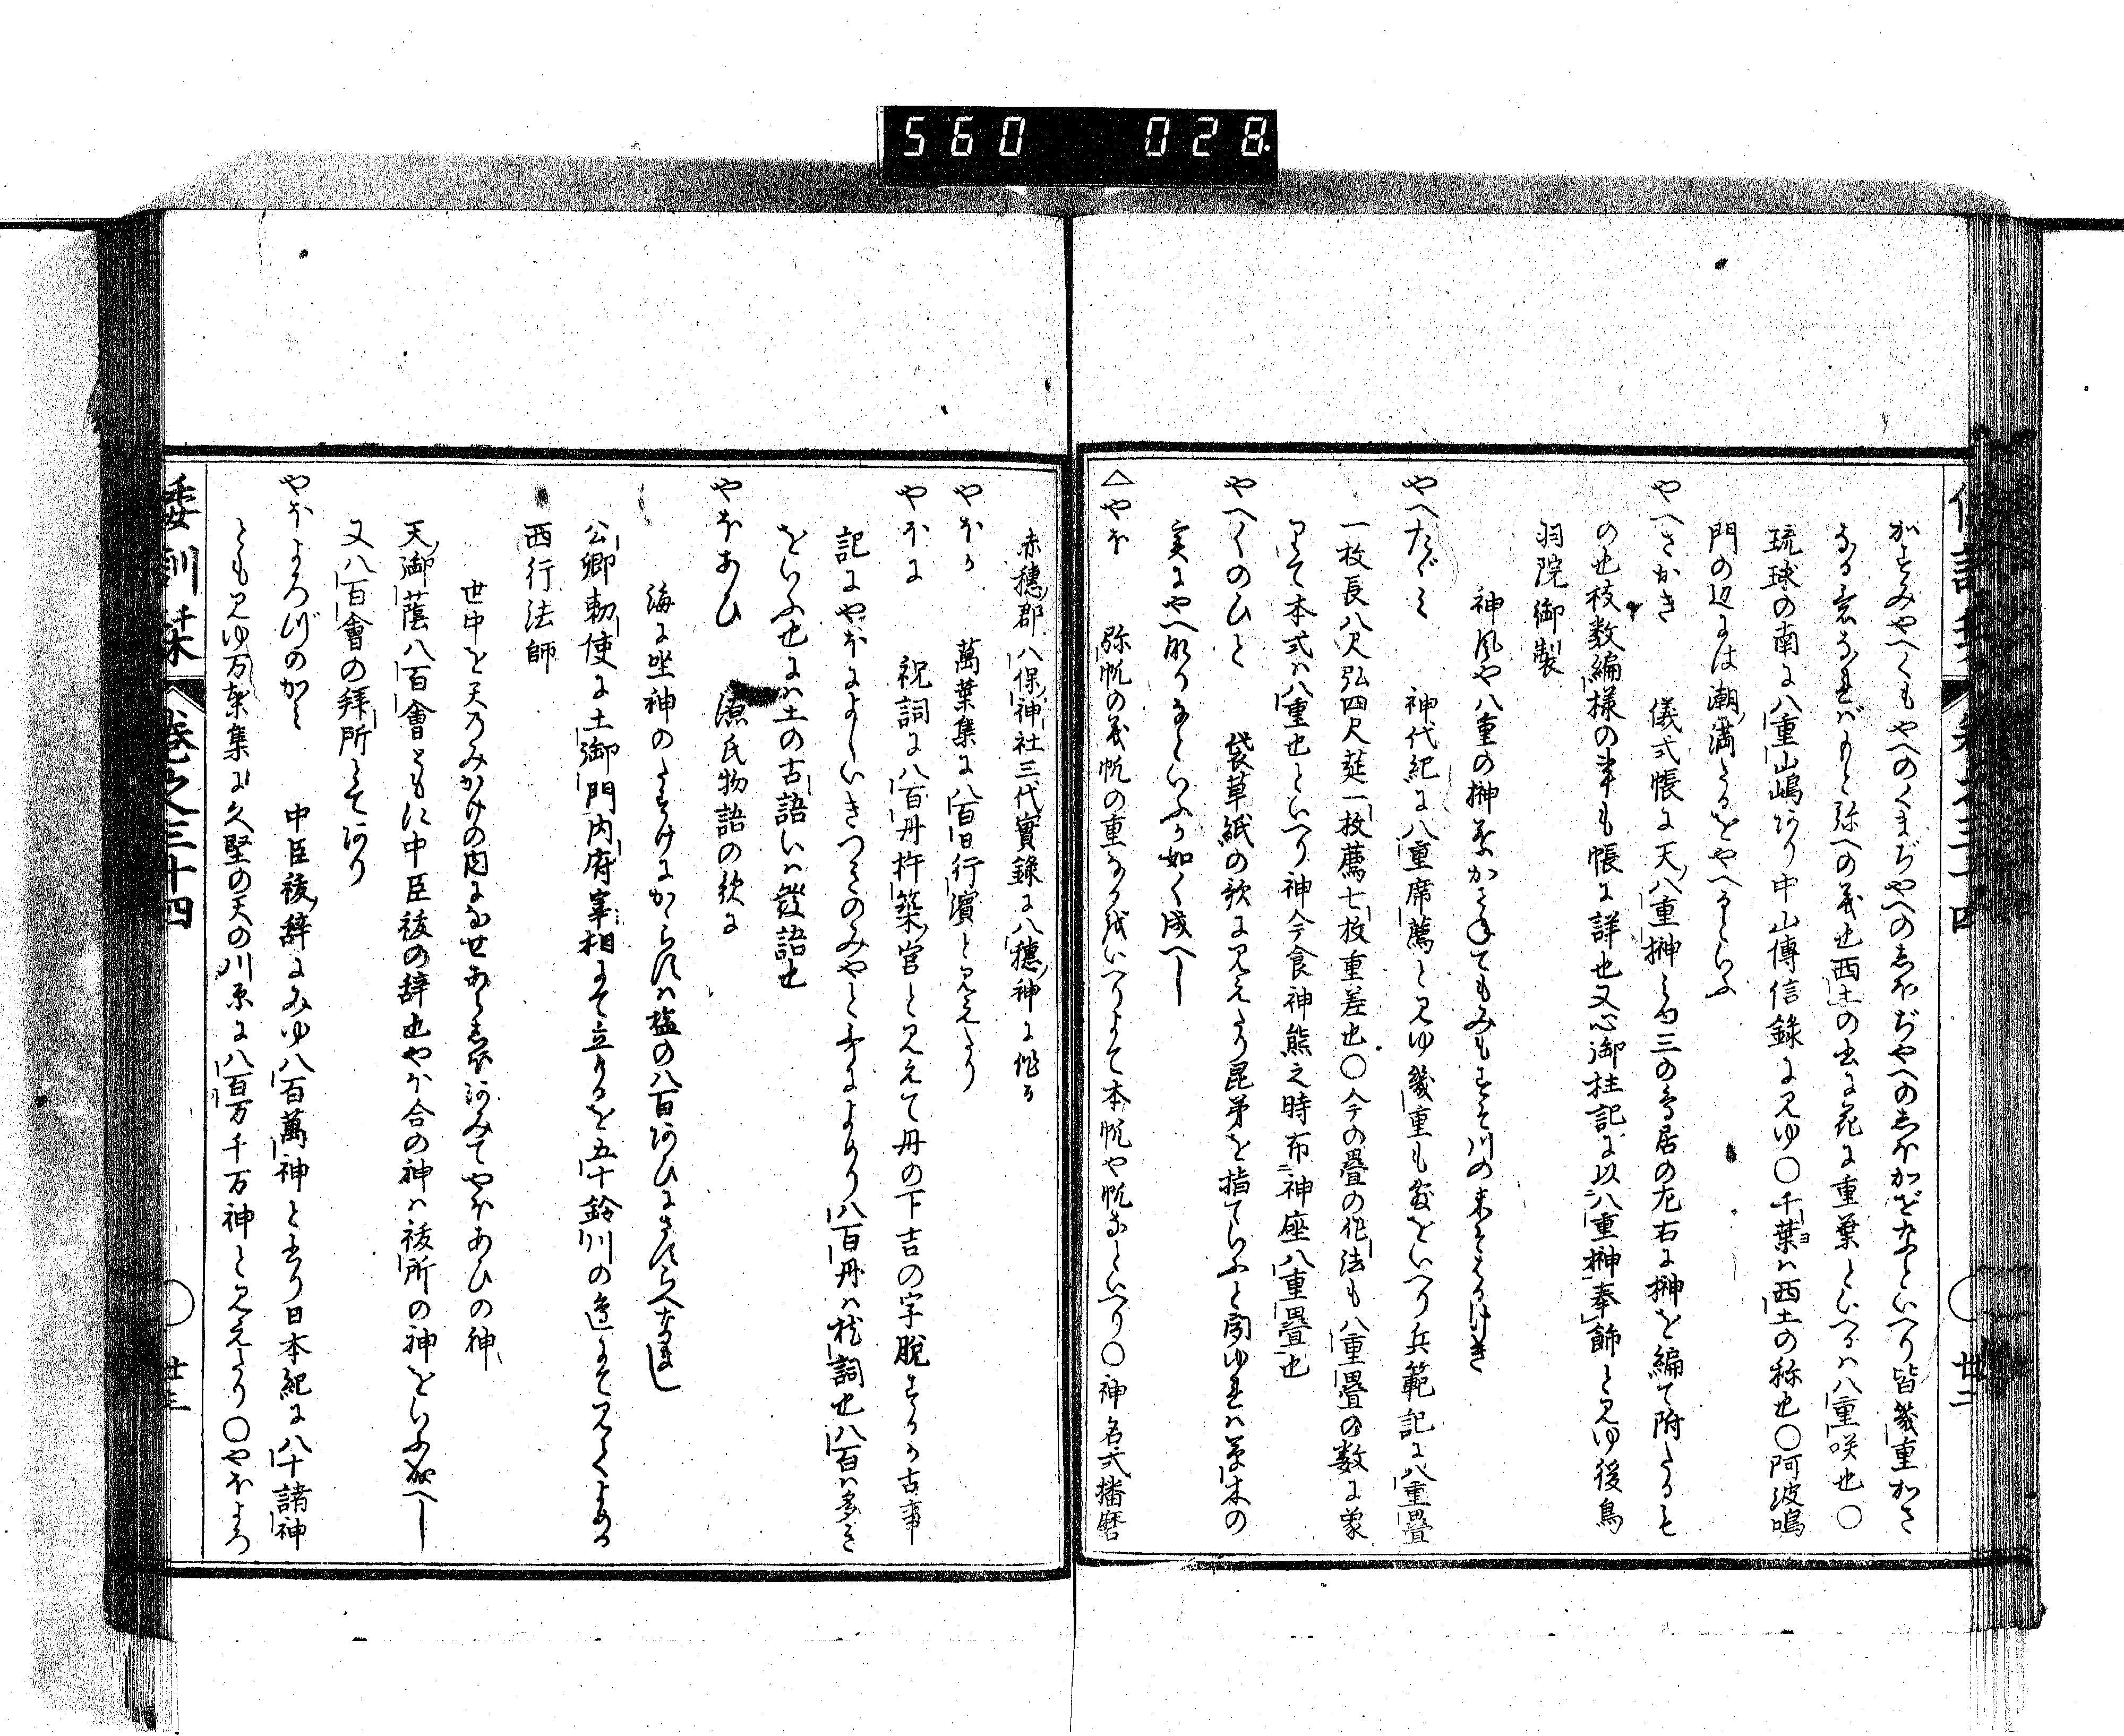 560 028
がすみやへくもやへのくまぢやへのしほぢやへのしほかぜなどいへり皆幾重かさ
なる意なればもと弥への義也西土の書に花に重葉といへるは八重咲也○
琉球の南に八重山嶋あり中山傳信錄に見ゆ○千葉は西土の称也○阿波鳴
門の辺には潮満たるをやへるといふ
やへさかき 儀式帳に天八重榊と見三の鳥居の左右に榊を編て附たるも
の也枝数編様の事も帳に詳也又心御柱記に以八重榊奉飾と見ゆ後鳥
羽院御製
神風や八重の榊葉かさねてもみもすそ川の末そはるけき
やへたゞみ 神代紀に八重席薦と見ゆ幾重も敷をいへり兵範記に八重疊
一枚長八尺弘四尺莚一枚薦七枚重差也○今の疊の作法も八重疊の数に象
りて本式は八重也といへり神今食神態之時布神座八重疊也
やへ〱のひと 袋草紙の歌に見えたり昆弟を指ていふと聞ゆれは草木の
実にやへ取りなといふか如く成へし
△やほ 弥帆の義帆の重なる或いへりよて本帆や帆なといへり○神名式播磨
赤穗郡八保神社三代實錄に八穗神に作る
やほか 萬葉集に八百日行濱と見えたり
やほに 祝詞に八百丹杵築宮と見えて丹の下吉の字脱するか古事
記にやほによしいきつきのみやと云によれり八百丹は祝詞也八百は多き
をいふ也には土の古語いは發語也
やほあひ 源氏物語の歌に
海に坐神のたすけにかゝらすは塩の八百あひにさすらへなまし
公卿勅使に土御門内府宰相にて立けるを五十鈴川の邊にて見てよめる
西行法師
世中を天のみかけの内になせあらしほあみてやほあひの神
天御蔭八百會ともに中臣祓の辞也やほ合の神は祓所の神をいふ成へし
又八百會の拜所とてあり
やほよろづのかみ 中臣祓辞にみゆ八百萬神と云り日本紀に八十諸神
とも見ゆ万葉集に久堅の天の川原に八百万千万神と見えたり○やほよろ
倭訓栞 卷之三十四 ○ 廿三